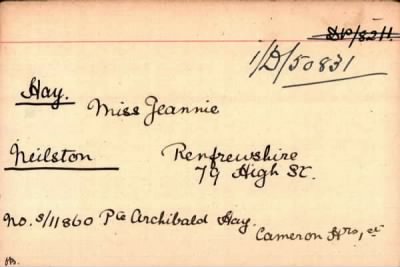 1/D/50831
Hay.
Miss Jeannie
Neilston
Renfrewshire
79 High St.
No. S/11860 Pte Archibald Hay.
Cameron Hrs, 1st